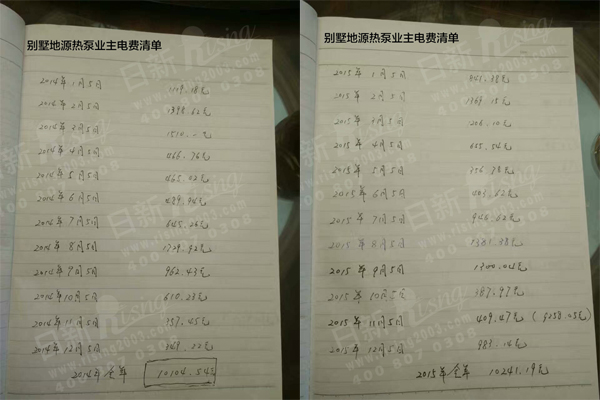 别墅地源热泵业主电费清单
2014年1月5日
2014年2月5日 1398.62元
2014年3月5日
2014年4月5日 466.76元
2014年5月5日 465.02元
2014年6月5日
2014年7月5日 645.26元
2014年8月5日 1729.42元
2014年9月5日 962.43元
2014年10月5日 610.23元
2014年11月5日 357.45元
2014年12月5日
2014年全年 10104.54元
别墅地源热泵业主电费清单
2015年1月5日
2015年2月5日 1369.15元
2015年3月5日 206.10元
2015年4月5日 655.54元
2015年5月5日
2015年6月5日
2015年7月5日 946.62元
2015年8月5日 1381.38元
2015年9月5日 1300.04元
2015年10月5日 387.97元
2015年11月5日 409.47元
2015年12月5日 983.14元
2015年全年 10241.19元
日新
400 000 0308